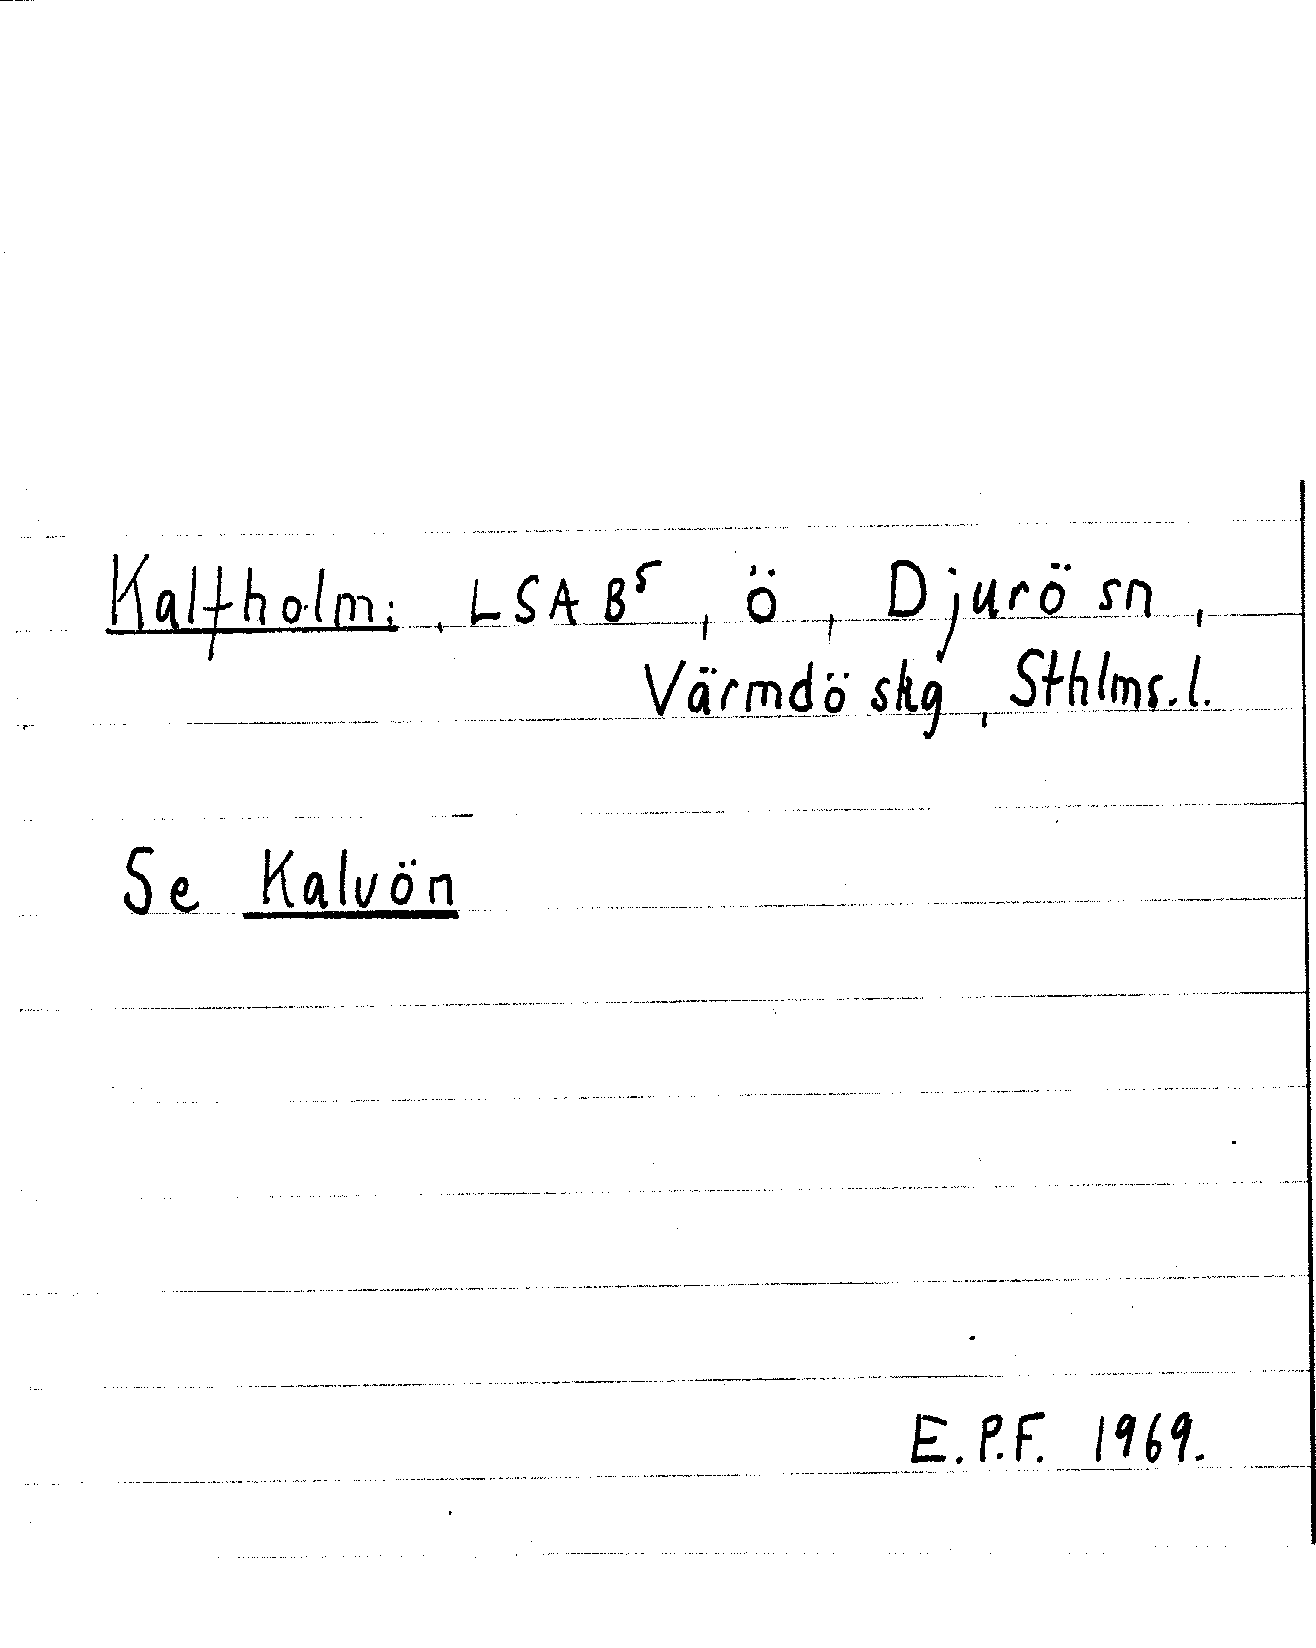 Kalfholm:, LSA B⁵, ö, Djurö sn,
Värmdö skg, Sthlms. l.
Se Kalvön
E.P.F. 1969.